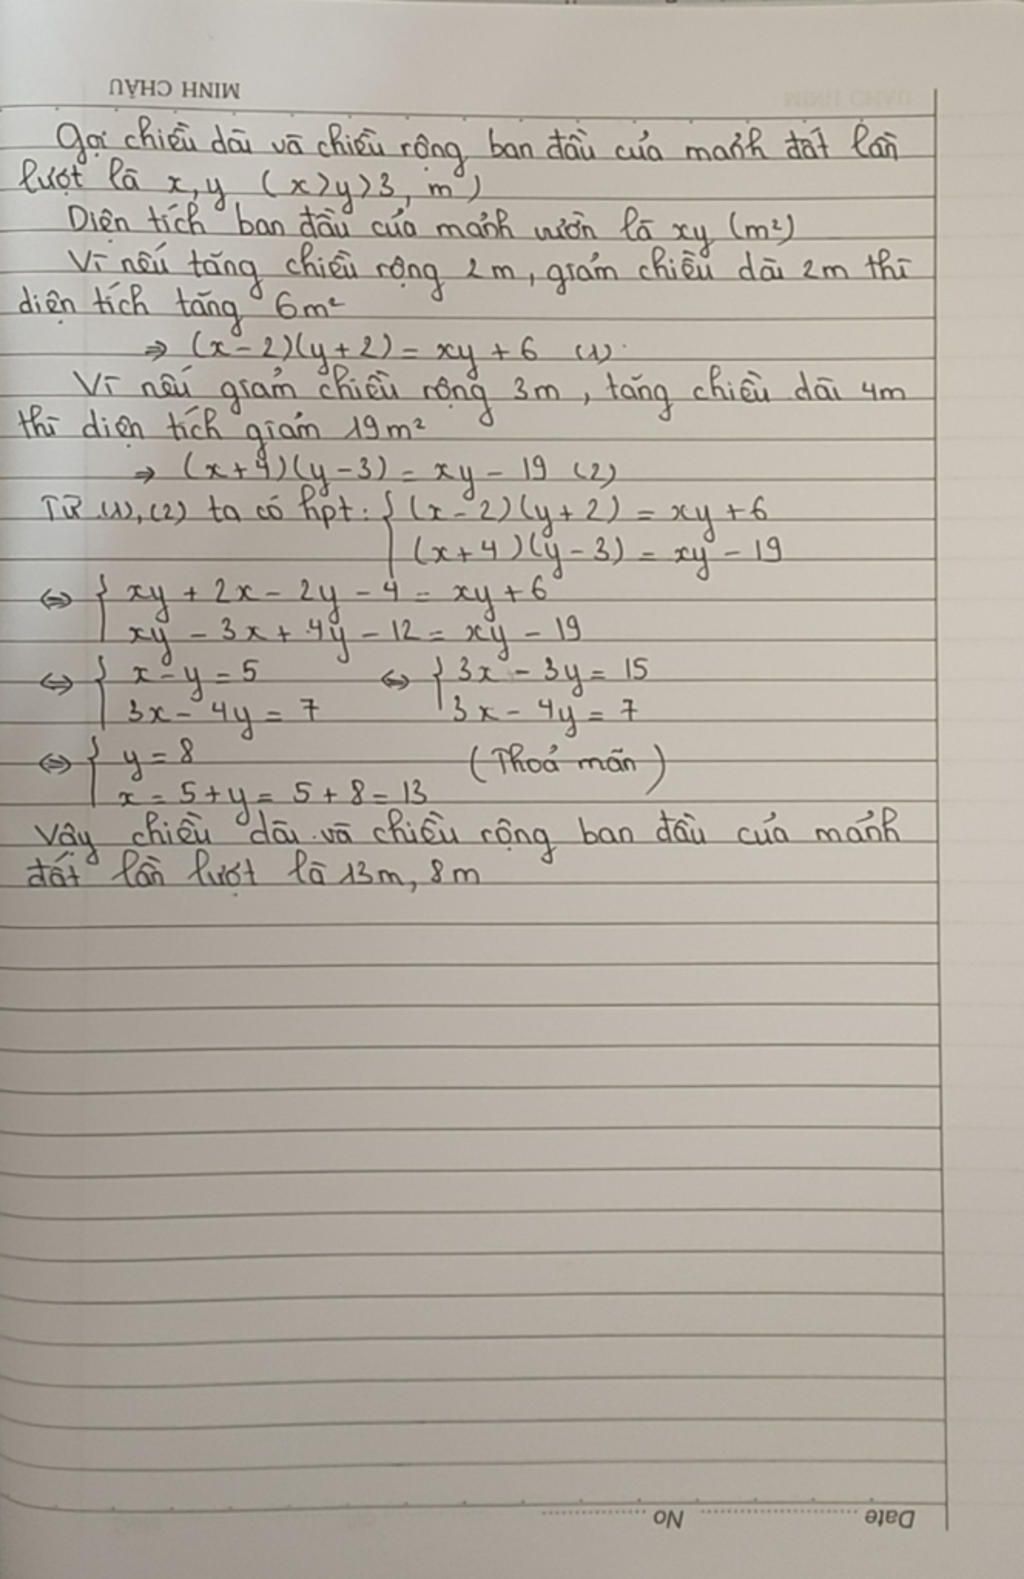 MINH CHÂU
Gọi chiều dài và chiều rộng ban đầu của mảnh đất lần
lượt là x, y (x>y>3, m)
Diện tích ban đầu của mảnh vườn là xy (m²)
Vì nếu tăng chiều rộng 2m, giảm chiều dài 2m thì
diện tích tăng 6m²
⇒ (x-2)(y+2) = xy + 6 (1)
Vì nếu giảm chiều rộng 3m, tăng chiều dài 4m
thì diện tích giảm 19m²
⇒ (x+4)(y-3) = xy - 19 (2)
Từ (1), (2) ta có hpt: { (x-2)(y+2) = xy + 6
(x+4)(y-3) = xy - 19
⇔ { xy + 2x - 2y - 4 = xy + 6
xy - 3x + 4y - 12 = xy - 19
⇔ { x - y = 5 ⇔ { 3x - 3y = 15
3x - 4y = 7 3x - 4y = 7
⇔ { y = 8 (Thoả mãn)
x = 5 + y = 5 + 8 = 13
Vậy chiều dài và chiều rộng ban đầu của mảnh
đất lần lượt là 13m, 8m
Date ........................ No ................